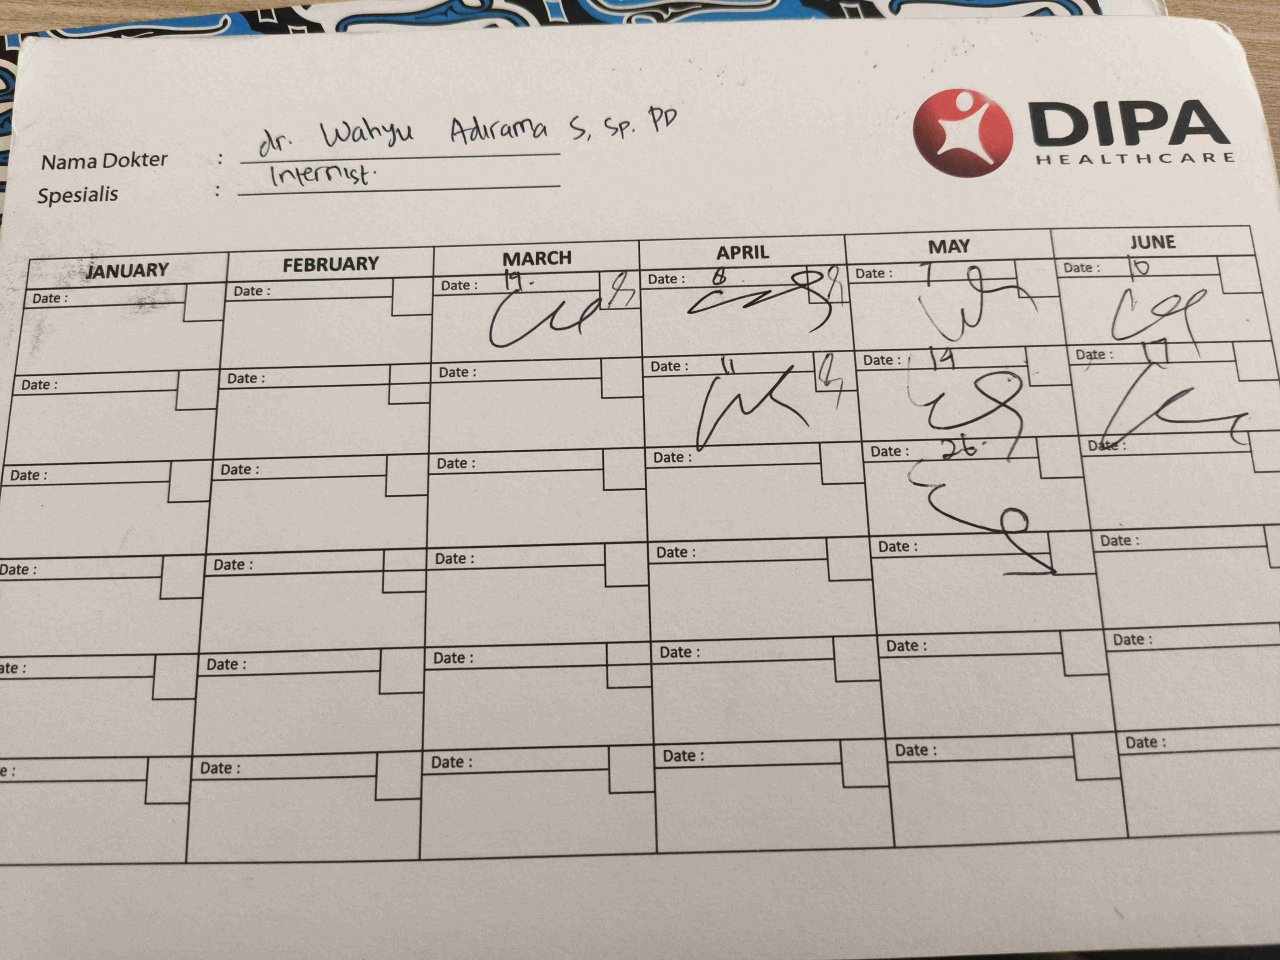 DIPA
HEALTHCARE
Nama Dokter : dr. Wahyu Adirama S, Sp. PD
Spesialis : Internist.
JANUARY FEBRUARY MARCH APRIL MAY JUNE
Date : Date : Date : 19. Date : 8 Date : 7 Date : 10
Date : Date : Date : Date : 11 Date : 14 Date : 17
Date : Date : Date : Date : Date : 26. Date :
Date : Date : Date : Date : Date : Date :
ate : Date : Date : Date : Date : Date :
e : Date : Date : Date : Date : Date :